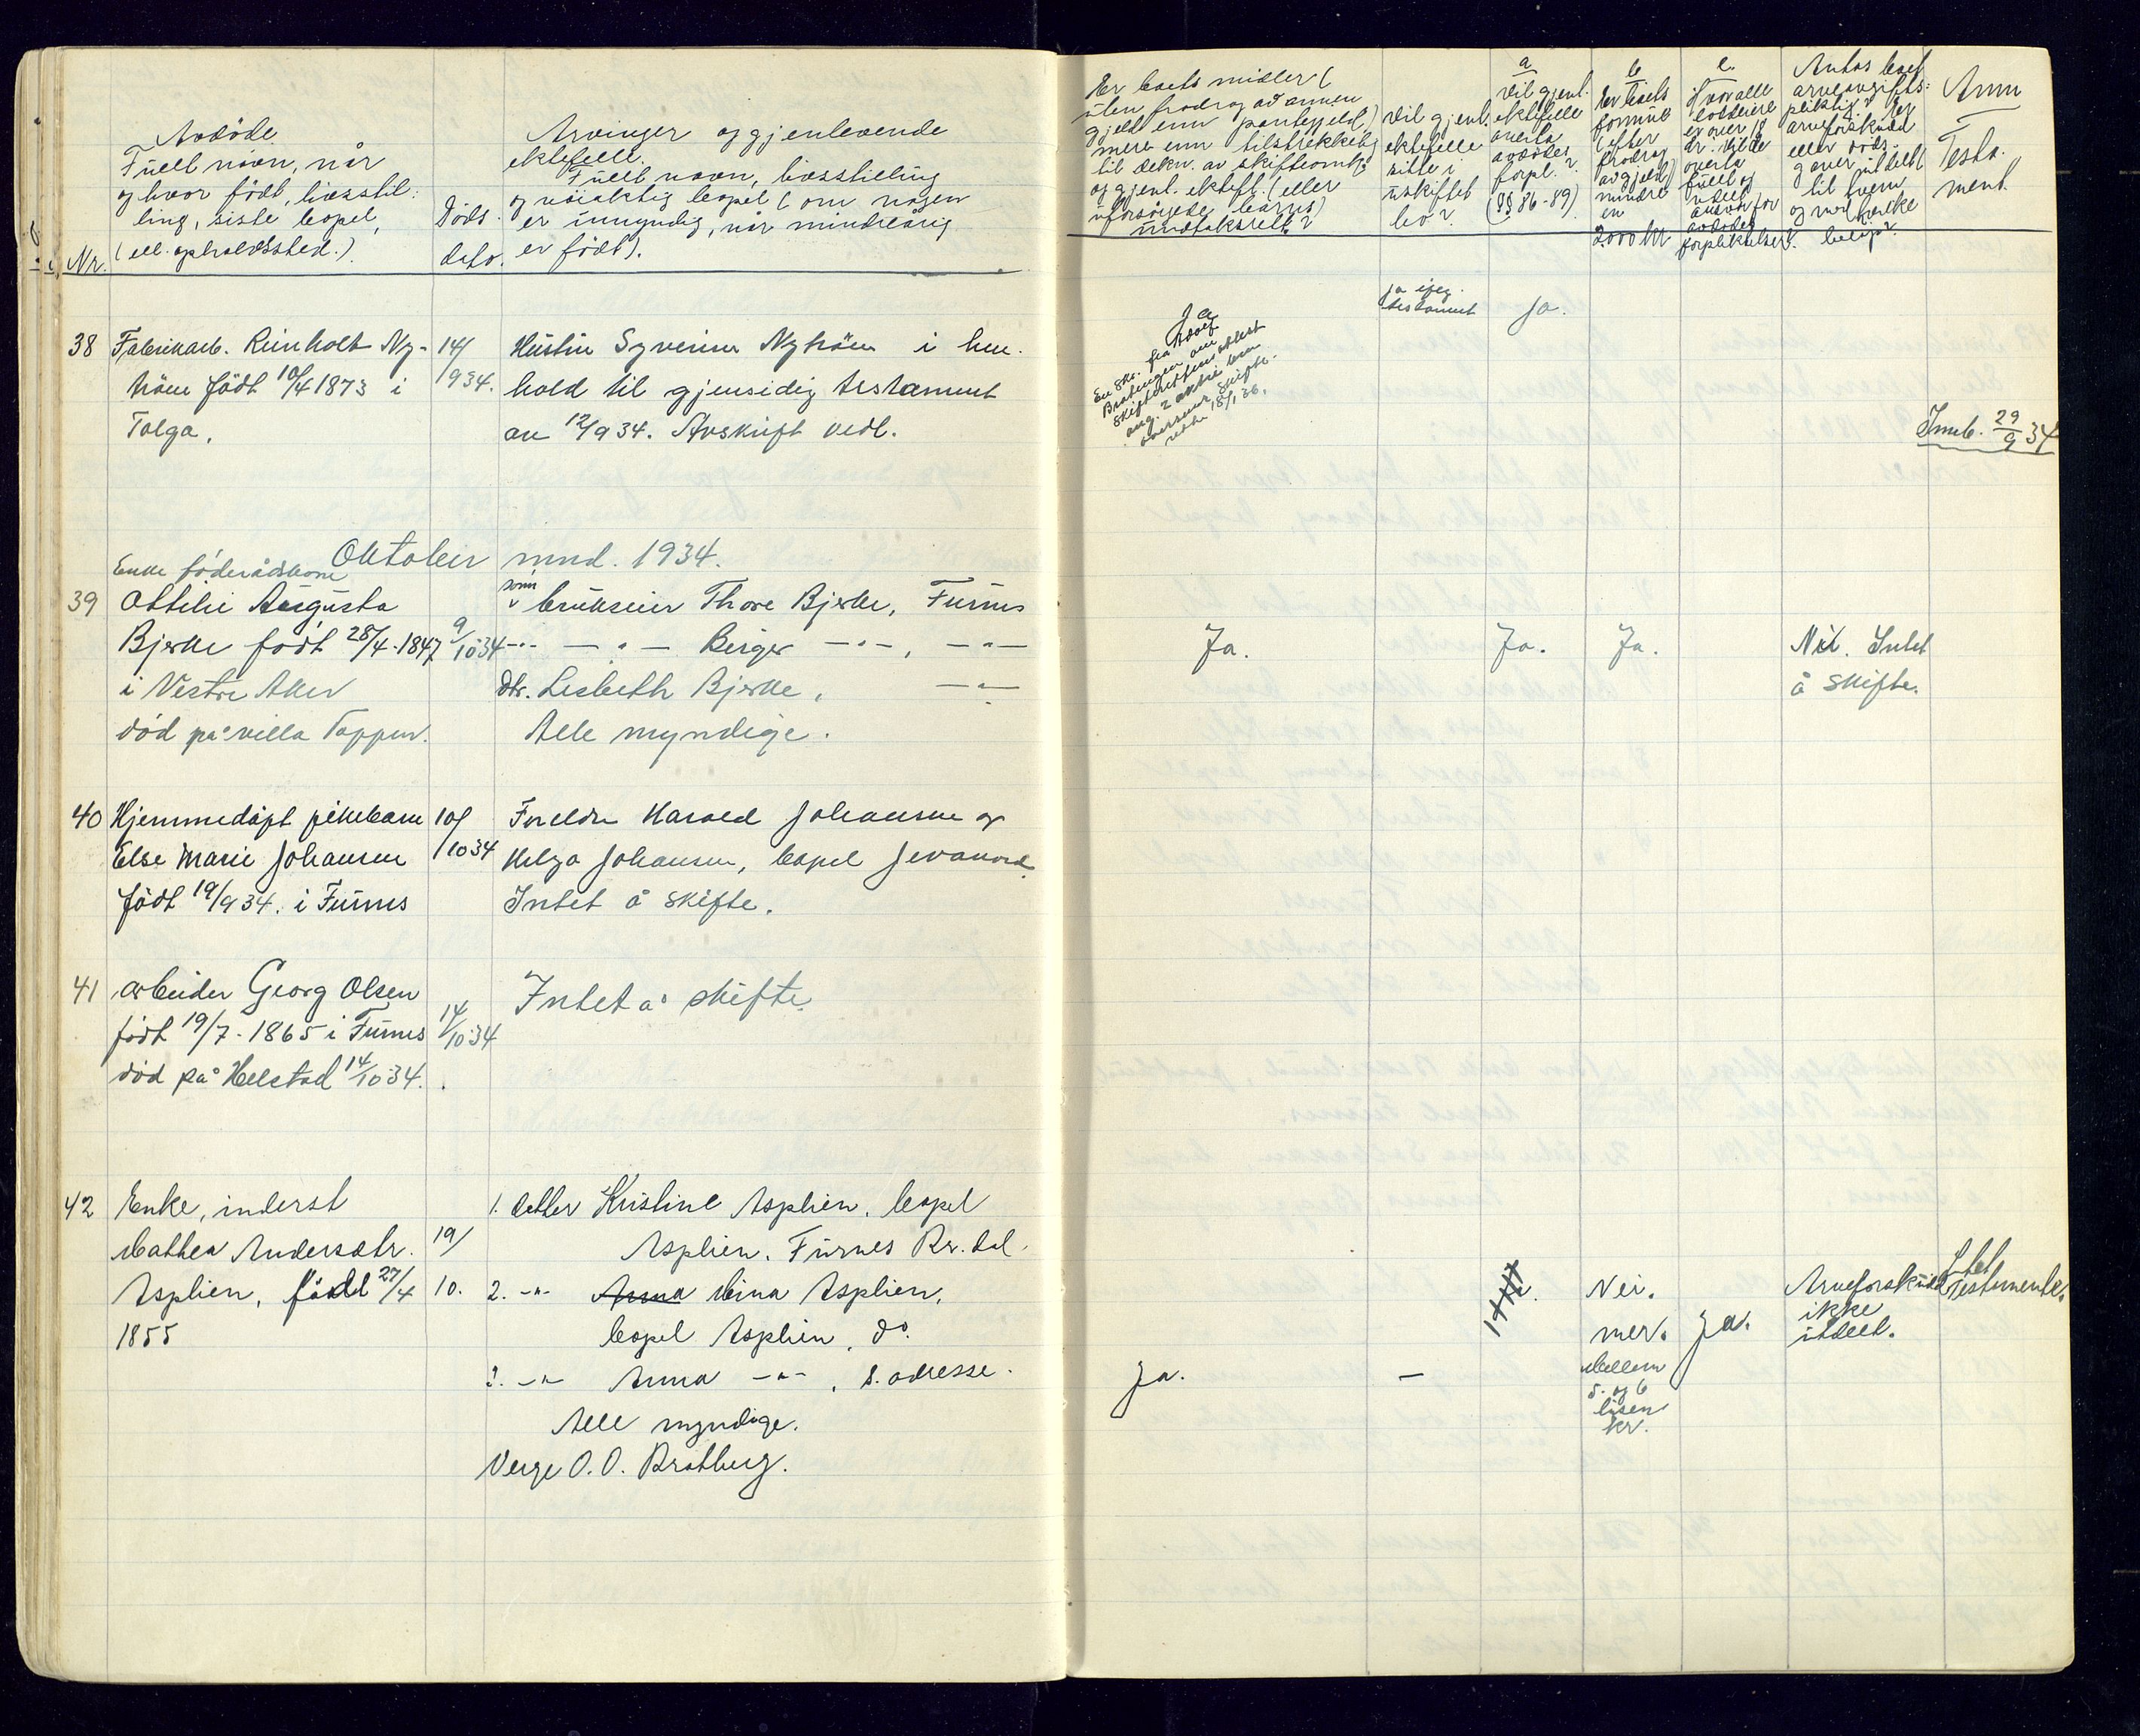 Nr.
Avdöde.
Fuell navn, når
og hvor född, livsstil-
ling, siste bopel,
(ell. opholdssted.)
Döds
dato.
Arvinger og gjenlevende
ektefelle.
Fuell navn, livsstilling
og nöiaktig bopel (om nogen
er umyndig, når mindreårig
er född).
Er boets midler (
uten fradrag av annen
gjeld enn pantegjeld)
mere enn tilstrekkelig
til dekn. av skifteomk.
og gjenl. ektef. (eller
uforsörgede barns)
undtaksrett?
Vil gjenl.
ektefelle
sitte i
uskiftet
bo?
a
Vil gjenl.
ektefelle
overta
avdödes
forpl.?
(§§ 86-89)
b
Er boets
formue
(efter
fradrag
av gjeld)
mindre
en
2000 kr
c.
Hvor alle
loddeiere
er over 18
år. Vil de
overta
fuell og
ansvar for
avdödes
forpliktelser?
Antas boet
arveavgifts-
pliktig? Er
arveforskudd
eller döds-
gaver utdelt
til hvem
og med hvilke
belöp?
Anm
Testa-
ment.
38 Fabrikarb. Reinholt Ny-
ström född 10/4 1873 i
Tolga.
14/
9 34.
Hustru Syverine Nyström i hen-
hold til gjensidig testament
av 12/9 34. Avskrift vedl.
Ja
En skr. fra Adolf
Bratengen om
skifterettens attest
ang. 2 aktie
oversendt skifte-
retten 18/1 36.
ja ifög.
testament
Ja.
Innb. 29/9 34
Oktober mnd. 1934.
Enke föderådskone
39 Ottilie Augusta
Bjerke född 28/4-1847
i Vestre Aker
död på villa Toppen.
9/10 34
sönn
brukseier Thore Bjerke, Furnes
-"- - " - Birger -"-, -"-
dtr. Lisbeth Bjerke, -"-
Alle myndige.
Ja.
Ja.
Ja.
Nei. Intet
å skifte.
40 Hjemmedöpt pikebarn
Else Marie Johansen
född 19/9 34. i Furnes
10/
10 34
Foreldre Harald Johansen og
Helga Johansen, bopel Jevanord
Intet å skifte.
41 arbeider Georg Olsen
född 19/7-1865 i Furnes
död på Helstad 14/10 34.
14/10 34
Intet å skifte.
42 Enke, inderst
Mathea Andersdtr.
Asplien, född 27/4
1855
19/
10.
1. datter Kristine Asplien, bopel
Asplien, Furnes Br.dal.
2. -"- Anna Mina Asplien,
bopel Asplien, do.
3. -"- Anna -"-, s. adresse.
Alle myndige.
Verge O. O. Bratberg.
Ja.
—
Nei.
mer.
Mellem
5- og 6
tusen
kr.
Ja.
Arveforskudd
ikke
utdelt.
Testamente.